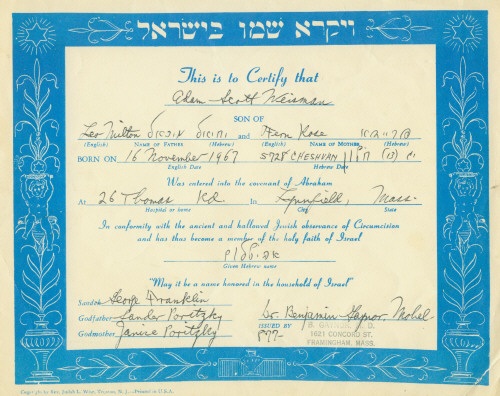 ויקרא שמו בישראל
This is to Certify that
Adam Scott Weisman
SON OF
Leo Milton and Fern Rose
(English) NAME OF FATHER (Hebrew) (English) NAME OF MOTHER (Hebrew)
BORN ON 16 November 1967 5728 CHESHVAN חשון
English Date Hebrew Date
Was entered into the covenant of Abraham
At 26 Thomas Rd. In Lynnfield, Mass.
Hospital or home City State
In conformity with the ancient and hallowed Jewish observance of Circumcision
and has thus become a member of the holy faith of Israel
Given Hebrew name
"May it be a name honored in the household of Israel"
Sandek George Franklin
Godfather Sander Poritzky Dr. Benjamin Gaynor, Mohel
ISSUED BY B. GAYNOR, M.D.
Godmother Janice Poritzky
1621 CONCORD ST.
FRAMINGHAM, MASS.
Copyright by Rev. Judah L. Printed in U.S.A.